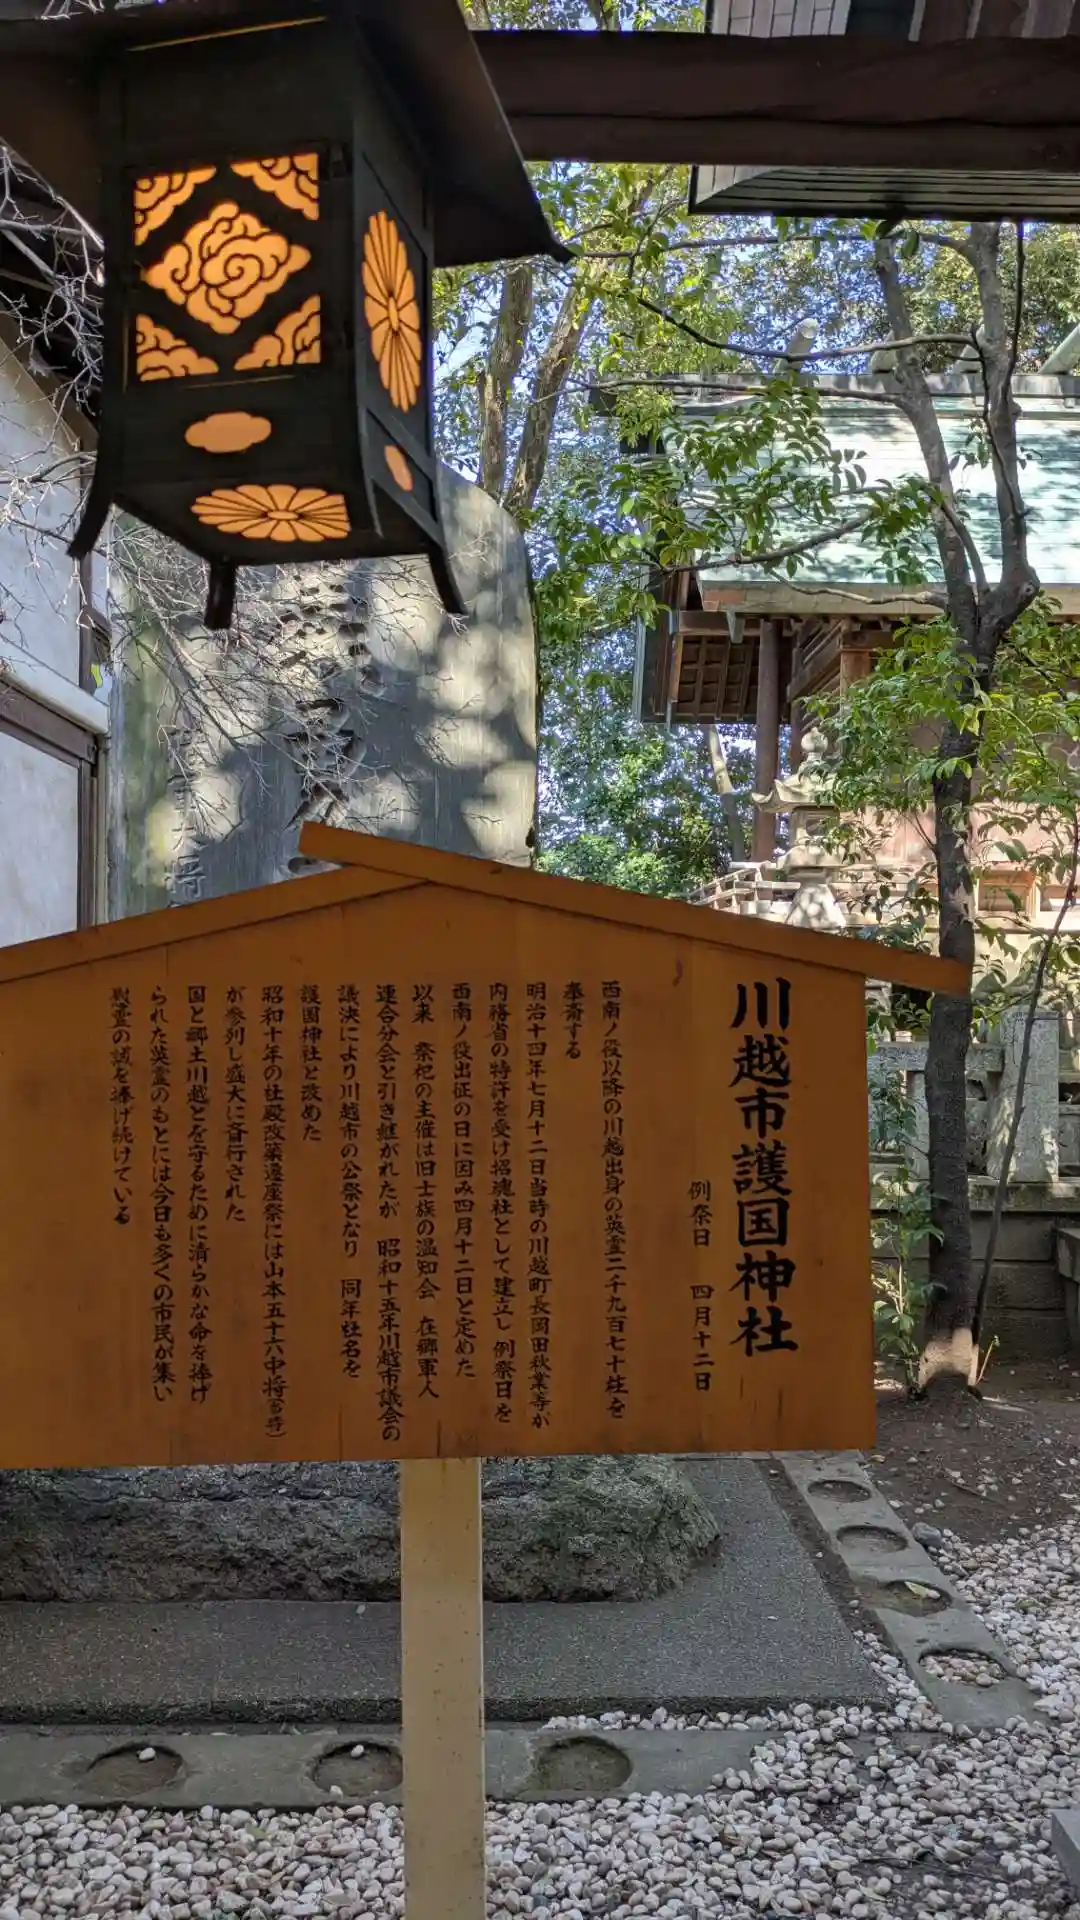 川越市護国神社
例祭日 四月十二日
西南ノ役以降の川越出身の英霊二千九百七十柱を
奉斎する
明治十四年七月十二日当時の川越町長岡田秋業等が
内務省の特許を受け招魂社として建立し 例祭日を
西南ノ役出征の日に因み四月十二日と定めた
以来 祭祀の主催は旧士族の温知会 在郷軍人
連合分会と引き継がれたが 昭和十五年川越市議会の
議決により川越市の公祭となり 同年社名を
護国神社と改めた
昭和十年の社殿改築遷座祭には山本五十六中将(当時)
が参列し盛大に斎行された
国と郷土川越とを守るために清らかな命を捧げ
られた英霊のもとには今日も多くの市民が集い
慰霊の誠を捧げ続けている